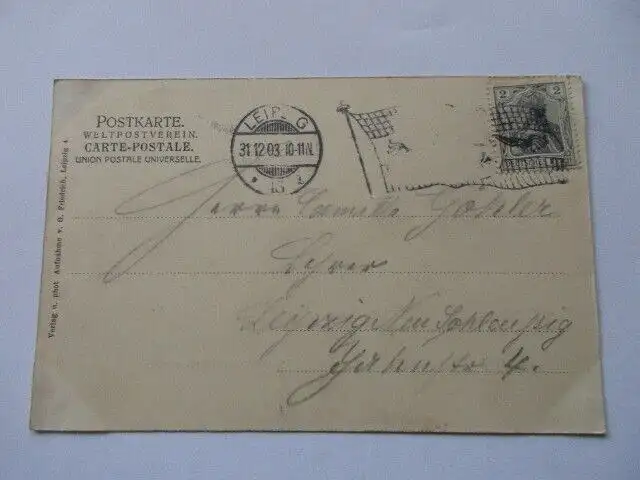 POSTKARTE.
WELTPOSTVEREIN.
CARTE-POSTALE.
UNION POSTALE UNIVERSELLE.
LEIPZIG
31.12.03.10-11N.
13
2 2
Verlag u. phot Aufnahme v. G. Friedrich, Leipzig 4
Herrn Camillo
Lehrer
Leipzig Neu Schleußig
4.